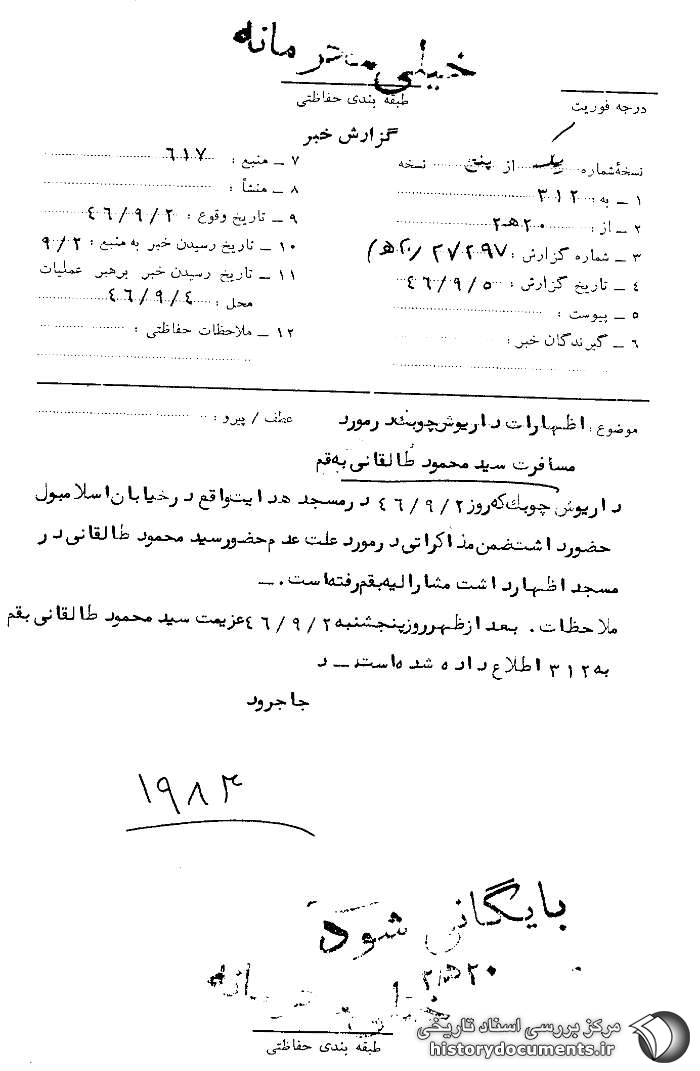 خیلی محرمانه
طبقه بندی حفاظتی
درجه فوریت
گزارش خبر
نسخهٔ شماره یک از پنج نسخه
۱ ــ به : ۳۱۲
۲ ــ از : ۲۰ هـ ۲
۳ ــ شماره گزارش : ۲۷۲۹۷ / ۲۰ هـ ۲
۴ ــ تاریخ گزارش : ۴۶/۹/۵
۵ ــ پیوست :
۶ ــ گیرندگان خبر :
۷ ــ منبع : ۶۱۷
۸ ــ منشأ :
۹ ــ تاریخ وقوع : ۴۶/۹/۲
۱۰ ــ تاریخ رسیدن خبر به منبع : ۹/۲
۱۱ ــ تاریخ رسیدن خبر برهبر عملیات
محل : ۴۶/۹/۴
۱۲ ــ ملاحظات حفاظتی :
موضوع : اظهارات داریوش چوبک در مورد
عطف / پیرو :
مسافرت سید محمود طالقانی به قم
داریوش چوبک که روز ۴۶/۹/۲ در مسجد هدایت واقع در خیابان اسلامبول
حضور داشت ضمن مذاکراتی در مورد علت عدم حضور سید محمود طالقانی در
مسجد اظهار داشت مشارالیه بقم رفته است . ــ
ملاحظات . بعد از ظهر روز پنجشنبه ۴۶/۹/۲ عزیمت سید محمود طالقانی بقم
به ۳۱۲ اطلاع داده شده است ــ د
جاجرود
بایگانی شود
۲۰ هـ ۲
خیلی محرمانه
طبقه بندی حفاظتی
مرکز بررسی اسناد تاریخی
historydocuments.ir